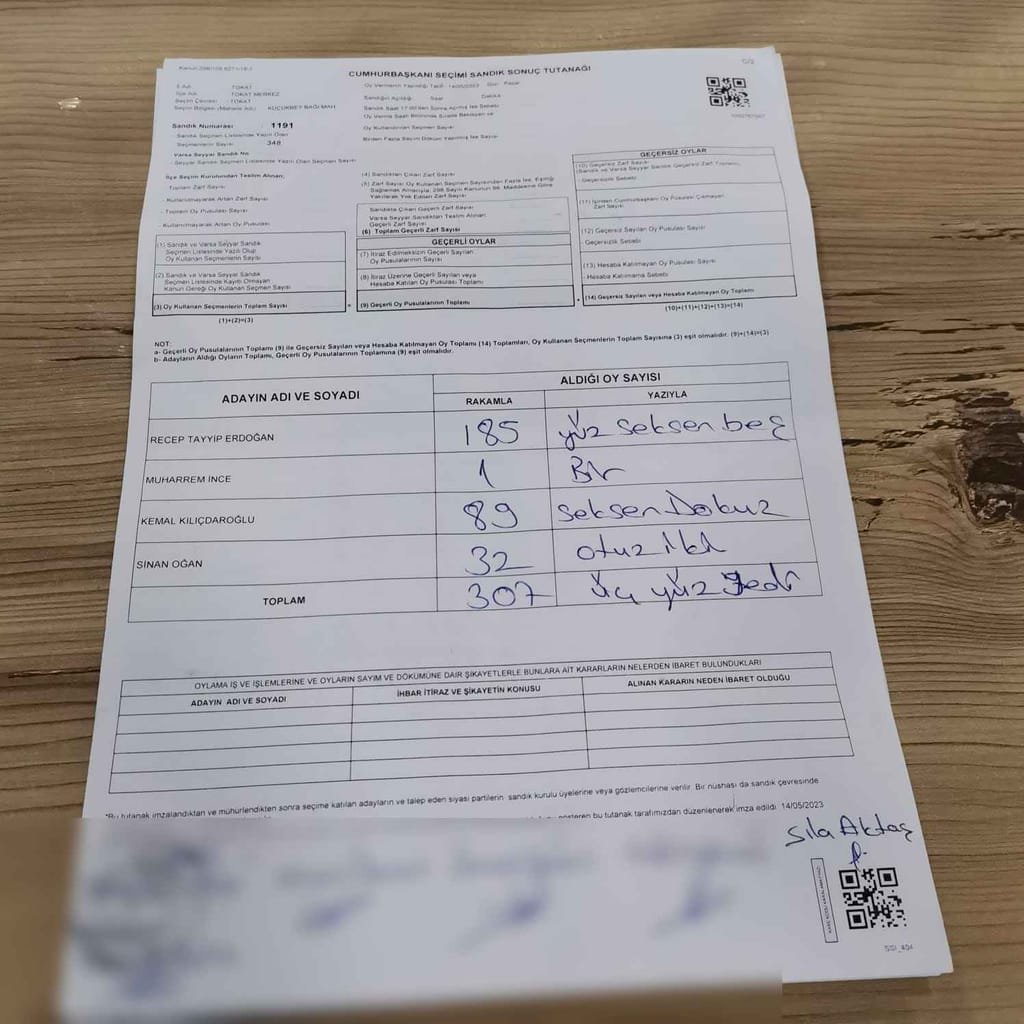 CUMHURBAŞKANI SEÇİMİ SANDIK SONUÇ TUTANAĞI
İli Adı: TOKAT
İlçe Adı: TOKAT MERKEZ
Seçim Çevresi: TOKAT
KÜÇÜKBEY BAĞI MAH.
Sandık Numarası : 1191
- Sandık Seçmen Listesinde Yazılı Olan
Seçmenlerin Sayısı 348
Varsa Seyyar Sandık No
- Seyyar Sandık Seçmen Listesinde Yazılı Olan Seçmen Sayısı
İlçe Seçim Kurulundan Teslim Alınan;
Toplam Zarf Sayısı
- Kullanılmayarak Artan Zarf Sayısı
- Toplam Oy Pusulası Sayısı
- Kullanılmayarak Artan Oy Pusulası
(1) Sandık ve Varsa Seyyar Sandık
Seçmen Listesinde Yazılı Olup
Oy Kullanan Seçmenlerin Sayısı
(2) Sandık ve Varsa Seyyar Sandık
Seçmen Listesinde Kayıtlı Olmayan
Kanun Gereği Oy Kullanan Seçmen Sayısı
(3) Oy Kullanan Seçmenlerin Toplam Sayısı
(1)+(2)=(3)
Oy Kullandıran Seçmen Sayısı
(4) Sandıktan Çıkan Zarf Sayısı
(5) Zarf Sayısı Oy Kullanan Seçmen Sayısından Fazla İse, Eşitliği
Sağlamak Amacıyla, 298 Sayılı Kanunun 98. Maddesine Göre
Yakılarak Yok Edilen Zarf Sayısı
Sandıkta Çıkan Geçerli Zarf Sayısı
Varsa Seyyar Sandıktan Teslim Alınan
Geçerli Zarf Sayısı
(6) Toplam Geçerli Zarf Sayısı
GEÇERLİ OYLAR
(7) İtiraz Edilmeksizin Geçerli Sayılan
Oy Pusulalarının Sayısı
(8) İtiraz Üzerine Geçerli Sayılan veya
Hesaba Katılan Oy Pusulası Toplamı
(9) Geçerli Oy Pusulalarının Toplamı
GEÇERSİZ OYLAR
(10) Geçersiz Zarf Sayısı
(Sandık ve Varsa Seyyar Sandık Geçersiz Zarf Toplamı)
- Geçersizlik Sebebi
(11) İçinden Cumhurbaşkanı Oy Pusulası Çıkmayan
Zarf Sayısı
(12) Geçersiz Sayılan Oy Pusulası Sayısı
- Geçersizlik Sebebi
(13) Hesaba Katılmayan Oy Pusulası Sayısı
- Hesaba Katılmama Sebebi
(14) Geçersiz Sayılan veya Hesaba Katılmayan Oy Toplamı
(10)+(11)+(12)+(13)=(14)
NOT:
a- Geçerli Oy Pusulalarının Toplamı (9) ile Geçersiz Sayılan veya Hesaba Katılmayan Oy Toplamı (14) Toplamları, Oy Kullanan Seçmenlerin Toplam Sayısına (3) eşit olmalıdır. (9)+(14)=(3)
b- Adayların Aldığı Oyların Toplamı, Geçerli Oy Pusulalarının Toplamına (9) eşit olmalıdır.
ADAYIN ADI VE SOYADI
ALDIĞI OY SAYISI
RAKAMLA YAZIYLA
RECEP TAYYİP ERDOĞAN 185 yüz seksen beş
MUHARREM İNCE 1 Bir
KEMAL KILIÇDAROĞLU 89 seksen Dokuz
SİNAN OĞAN 32 otuz iki
TOPLAM 307 Üç yüz Yedi
OYLAMA İŞ VE İŞLEMLERİNE VE OYLARIN SAYIM VE DÖKÜMÜNE DAİR ŞİKAYETLERLE BUNLARA AİT KARARLARIN NELERDEN İBARET BULUNDUKLARI
ADAYIN ADI VE SOYADI İHBAR İTİRAZ VE ŞİKAYETİN KONUSU ALINAN KARARIN NEDEN İBARET OLDUĞU
*Bu tutanak imzalandıktan ve mühürlendikten sonra seçime katılan adayların ve talep eden siyasi partilerin sandık kurulu üyelerine veya gözlemcilerine verilir. Bir nüshası da sandık çevresinde
gösteren bu tutanak tarafımızdan düzenlenerek imza edildi. 14/05/2023
Sıla Aktaş